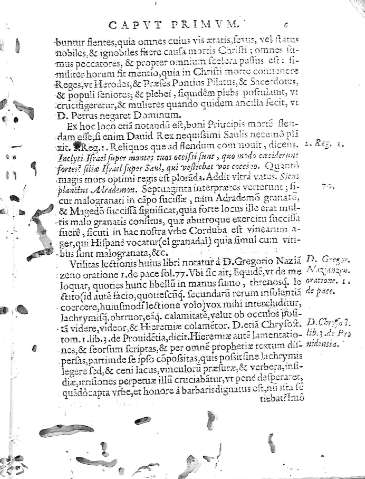 CAPVT PRIMVM. 6
buntur flentes, quia omnes cuius vis ætatis, sexus, vel status
nobiles, & ignobiles fuere causa mortis Christi: omnes su-
mus peccatores, & propter omnium scelera passus est: si-
militer horum fit mentio, quia in Christi morte
Reges, vt Herodes, & Præses Pontius Pilatus, & Sacerdotes,
& populi seniores, & plebei, siquidem plebs postulant, vt
crucifigeretur, & mulieres quando quidem ancilla fecit, vt
D. Petrus negaret Dominum.
Ex hoc loco etiā notandū est, boni Principis mortē flen-
dam esse, si enim Dauid Rex nequissimi Saulis
xit. 1. Reg. 1. Reliquos que ad flendum cum eo inuit, dicens. 1. Reg. 1.
Inclyti Israel super montes tuos occisi sunt, quo modo ceciderunt
fortes? filiæ Israel super Saul, qui vestiebat vos coccino. Quantò
magis mors optimi regis est ploráda. Addit vltra vates. Sicut
planctus Adrademon. Septuaginta interpretes verterunt, si- 70.
cut malogranati in cāpo succissæ, nam Adrademō granatū,
& Magedō succissā significat, quia forte locus ille erat mul-
tis malo granatis consitus, quæ ab vtroque exercitu succissa
fuere, sicuti in hac nostra vrbe Corduba est vinearum a-
ger, qui Hispanè vocatur (el granadal) quia simul cum viti-
bus sunt malogranata, &c.
Vtilitas lectionis huius libri notatur à D. Gregorio Naziā D. Gregor.
zeno oratione 1. de pace fol. 77. Vbi sic ait, Equidē, vt de me Nazianzen.
loquar, quoties hunc libellū in manus sumo, threnosq. le oratione. 1.
ctito (id autē facio, quotiescūq. secundarū rerum insolentiā de pace.
coercere, huiusmodi lectione volo) vox mihi intercluditur,
lachrymisq. obruor, eāq. calamitatē, velut ob oculos posi-
tā videre, videor, & Hieremiæ colamētor. D. etiā Chrysost. D. Chrysost.
tom. 1. lib. 3. de Prouidētia, dicit. Hieremiæ autē lamentatio- lib. 3. de Pro
nes, & seorsum scriptas, & per omnē prophetiæ textum dis- uidentia.
persas, partim de se ipso cōpositas, quis posit sine lachrymis
legere sed, & ceni lacus, vinculorū pressuræ, & verbera, insi-
diæ, irrisiones perpetuæ illū cruciabātur, vt penè desperaret,
quādo capta vrbe, et honore à barbaris dignatus est, nā ita se
tiebat? Imò